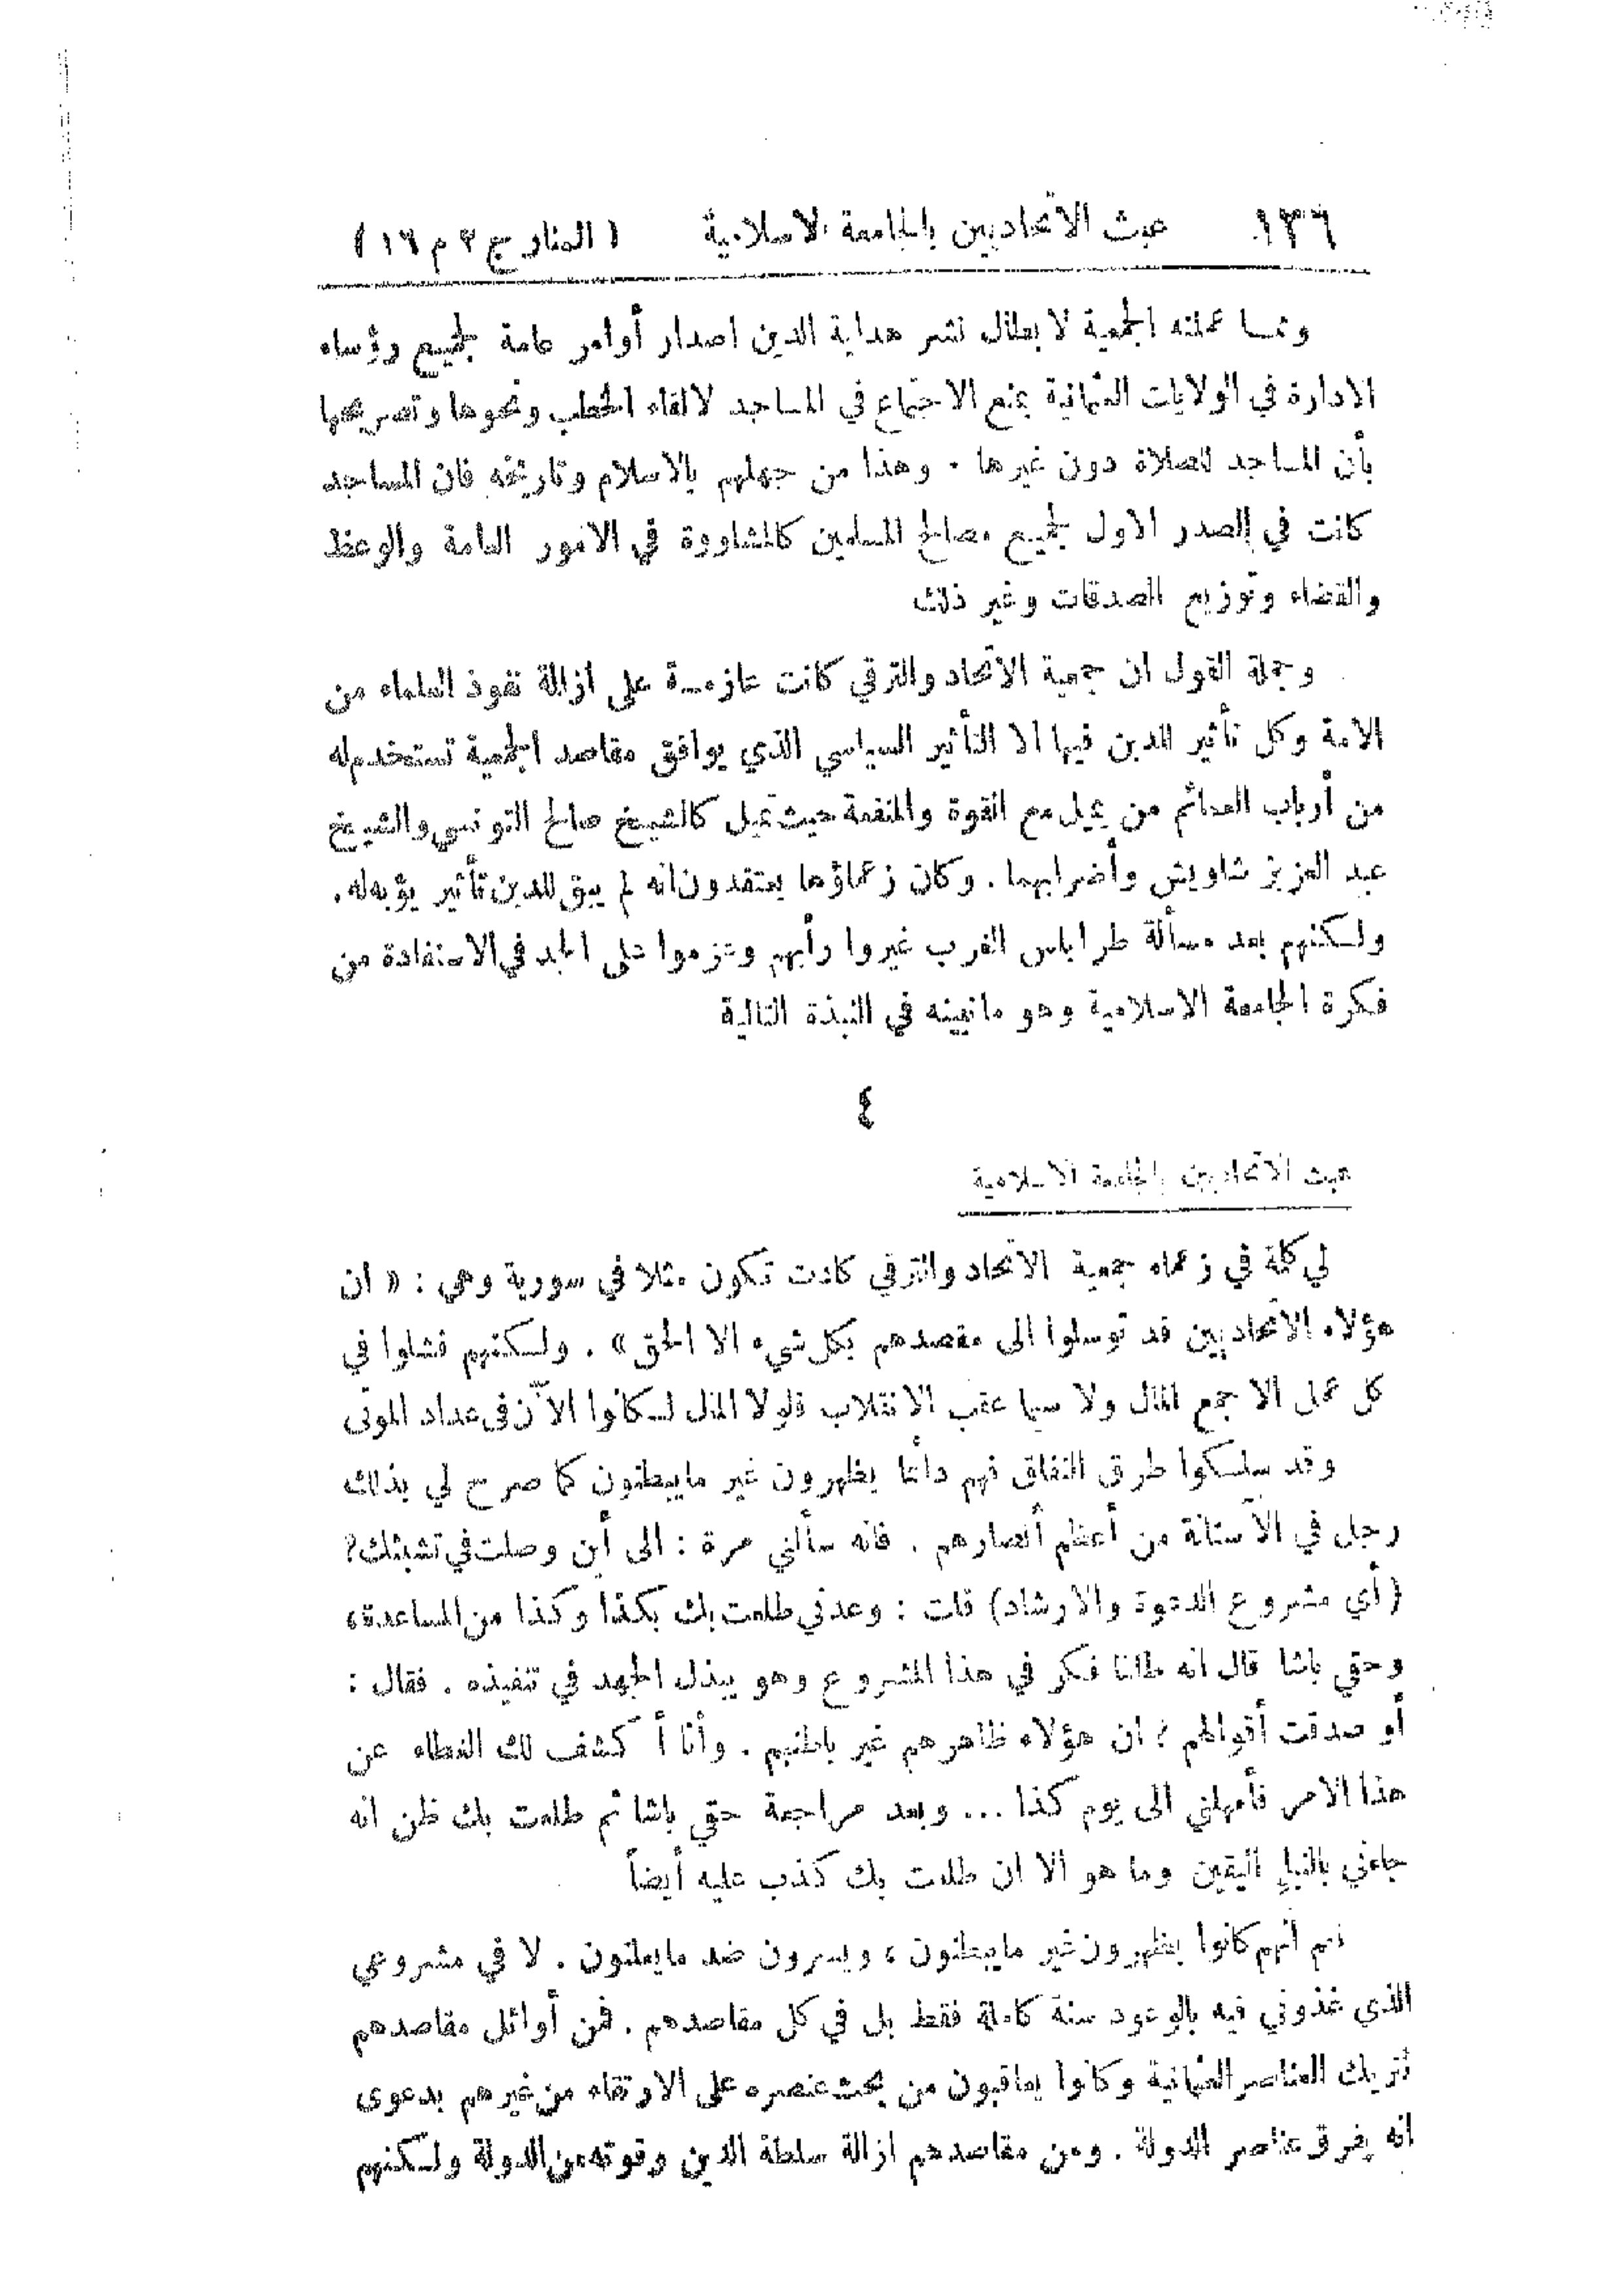 ١٣٦ عبث الاتحاديين بالجامعة الاسلامية (المنار ج ٢ م ١٦)
ومما عملته الجمعية لابطال نشر هداية الدين اصدار أوامر عامة لجميع رؤساء
الادارة في الولايات العثمانية بمنع الاجتماع في المساجد لالقاء الخطب ونحوها وتصريحها
بأن المساجد للصلاة دون غيرها . وهذا من جهلهم بالاسلام وتاريخه فان المساجد
كانت في الصدر الاول لجميع مصالح المسلمين كالمشاورة في الامور العامة والوعظ
والقضاء وتوزيع الصدقات وغير ذلك
وجملة القول ان جمعية الاتحاد والترقي كانت عازمة على ازالة نفوذ العلماء من
الامة وكل تأثير للدين فيها الا التأثير السياسي الذي يوافق مقاصد الجمعية تستخدم له
من أرباب العمائم من يميل مع القوة والمنفعة حيث تميل كالشيخ صالح التونسي والشيخ
عبد العزيز شاويش وأضرابهما . وكان زعماؤها يعتقدون انه لم يبق للدين تأثير يؤبه له .
ولكنهم بعد مسألة طرابلس الغرب غيروا رأيهم وعزموا على الجد في الاستفادة من
فكرة الجامعة الاسلامية وهو ما نبينه في النبذة التالية
٤
عبث الاتحاديين بالجامعة الاسلامية
لي كلمة في زعماء جمعية الاتحاد والترقي كادت تكون مثلا في سورية وهي : « ان
هؤلاء الاتحاديين قد توسلوا الى مقصدهم بكل شيء الا الحق » . ولكنهم فشلوا في
كل عمل الا جمع المال ولا سيما عقب الانقلاب فلولا المال لكانوا الآن في عداد الموتى
وقد سلكوا طرق النفاق فهم دائما يظهرون غير ما يبطنون كما صرح لي بذلك
رجل في الآستانة من أعظم أنصارهم . فانه سألني مرة : الى أين وصلت في تشبثك؟
(أي مشروع الدعوة والارشاد) قلت : وعدني طلعت بك بكذا وكذا من المساعدة،
وحقي باشا قال انه طالما فكر في هذا المشروع وهو يبذل الجهد في تنفيذه . فقال :
أو صدقت أقوالهم ؟ ان هؤلاء ظاهرهم غير باطنهم . وأنا أكشف لك الغطاء عن
هذا الامر فأمهلني الى يوم كذا ... وبعد مراجعة حقي باشا ثم طلعت بك ظن انه
جاءني بالنبإ اليقين وما هو الا ان طلعت بك كذب عليه أيضاً
نعم انهم كانوا يظهرون غير ما يبطنون ، ويسرون ضد ما يعلنون . لا في مشروعي
الذي غذوني فيه بالوعود سنة كاملة فقط بل في كل مقاصدهم . فمن أوائل مقاصدهم
تتريك العناصر العثمانية وكانوا يعاقبون من يحث عنصره على الارتقاء من غيرهم بدعوى
انه يفرق عناصر الدولة . ومن مقاصدهم ازالة سلطة الدين وقوته من الدولة ولكنهم